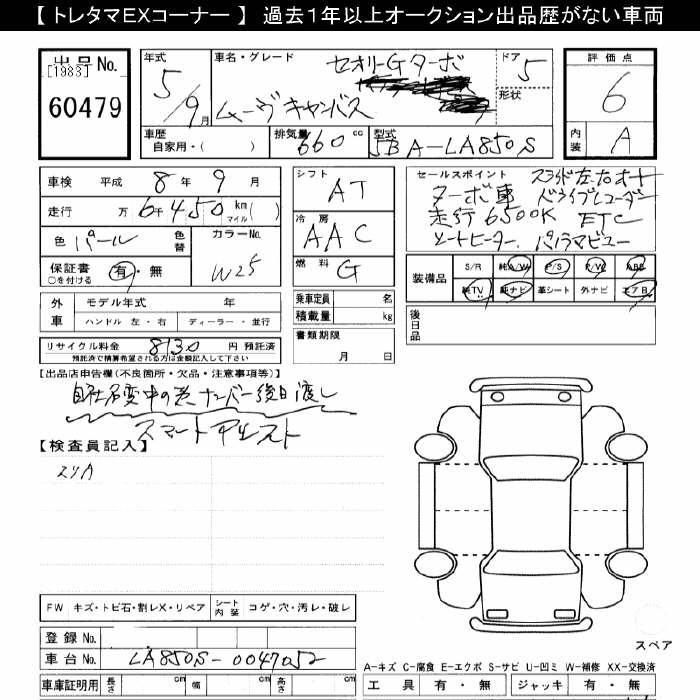 【 トレタマEXコーナー 】 過去1年以上オークション出品歴がない車両
出品 No.
[1983]
60479
年式
5/9月
車名・グレード
セオリーGターボ
ムーヴキャンバス
ドア
5
形状
評価点
6
内装
A
車歴
自家用・( )
排気量
660 cc
型式
5BA-LA850S
車検 平成 8年 9月
走行 万 6千450 km マイル( )
色 パール 色替
カラーNo.
W25
保証書 有・無
○を付ける
シフト
AT
冷房
AAC
燃料
G
セールスポイント スライド左右オート
ターボ車 ドライブレコーダー
走行6500K ETC
シートヒーター. パノラマビュー
装備品
S/R 純A/W P/S P/W ABS
純TV 純ナビ 革シート 外ナビ エアB
外車
モデル年式 年
ハンドル 左・右 ディーラー・並行
乗車定員 名
積載量 kg
後日品
リサイクル料金 8130 円 預託済
預託済で積算希望される方は金額記入して下さい
書類期限
月 日
【出品店申告欄(不良箇所・欠品・注意事項等)】
自社名変中の為ナンバー後日渡し
スマートアシスト
【検査員記入】
スリA
FW キズ・トビ石・割レX・リペア
シート内装 コゲ・穴・汚レ・破レ
登録 No.
車台 No. LA850S-0047052
車庫証明用 長さ cm 幅 cm 高さ cm
スペア
A-キズ C-腐食 E-エクボ S-サビ U-凹ミ W-補修 XX-交換済
工具 有・無 ジャッキ 有・無